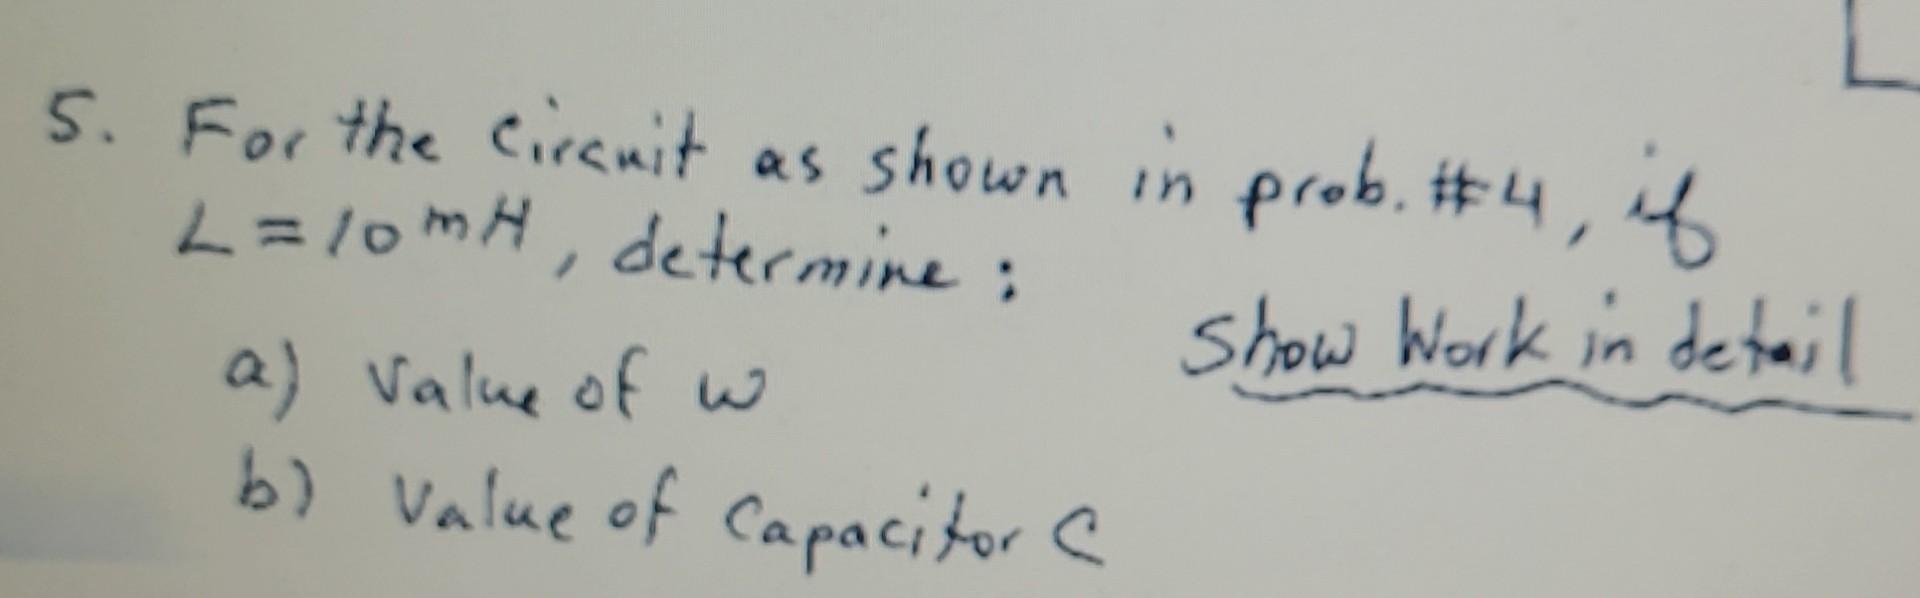 5. For the Circuit as shown in prob. #4, if
L = 10 mH, determine:
Show Work in detail
a) Value of ω
b) Value of Capacitor C